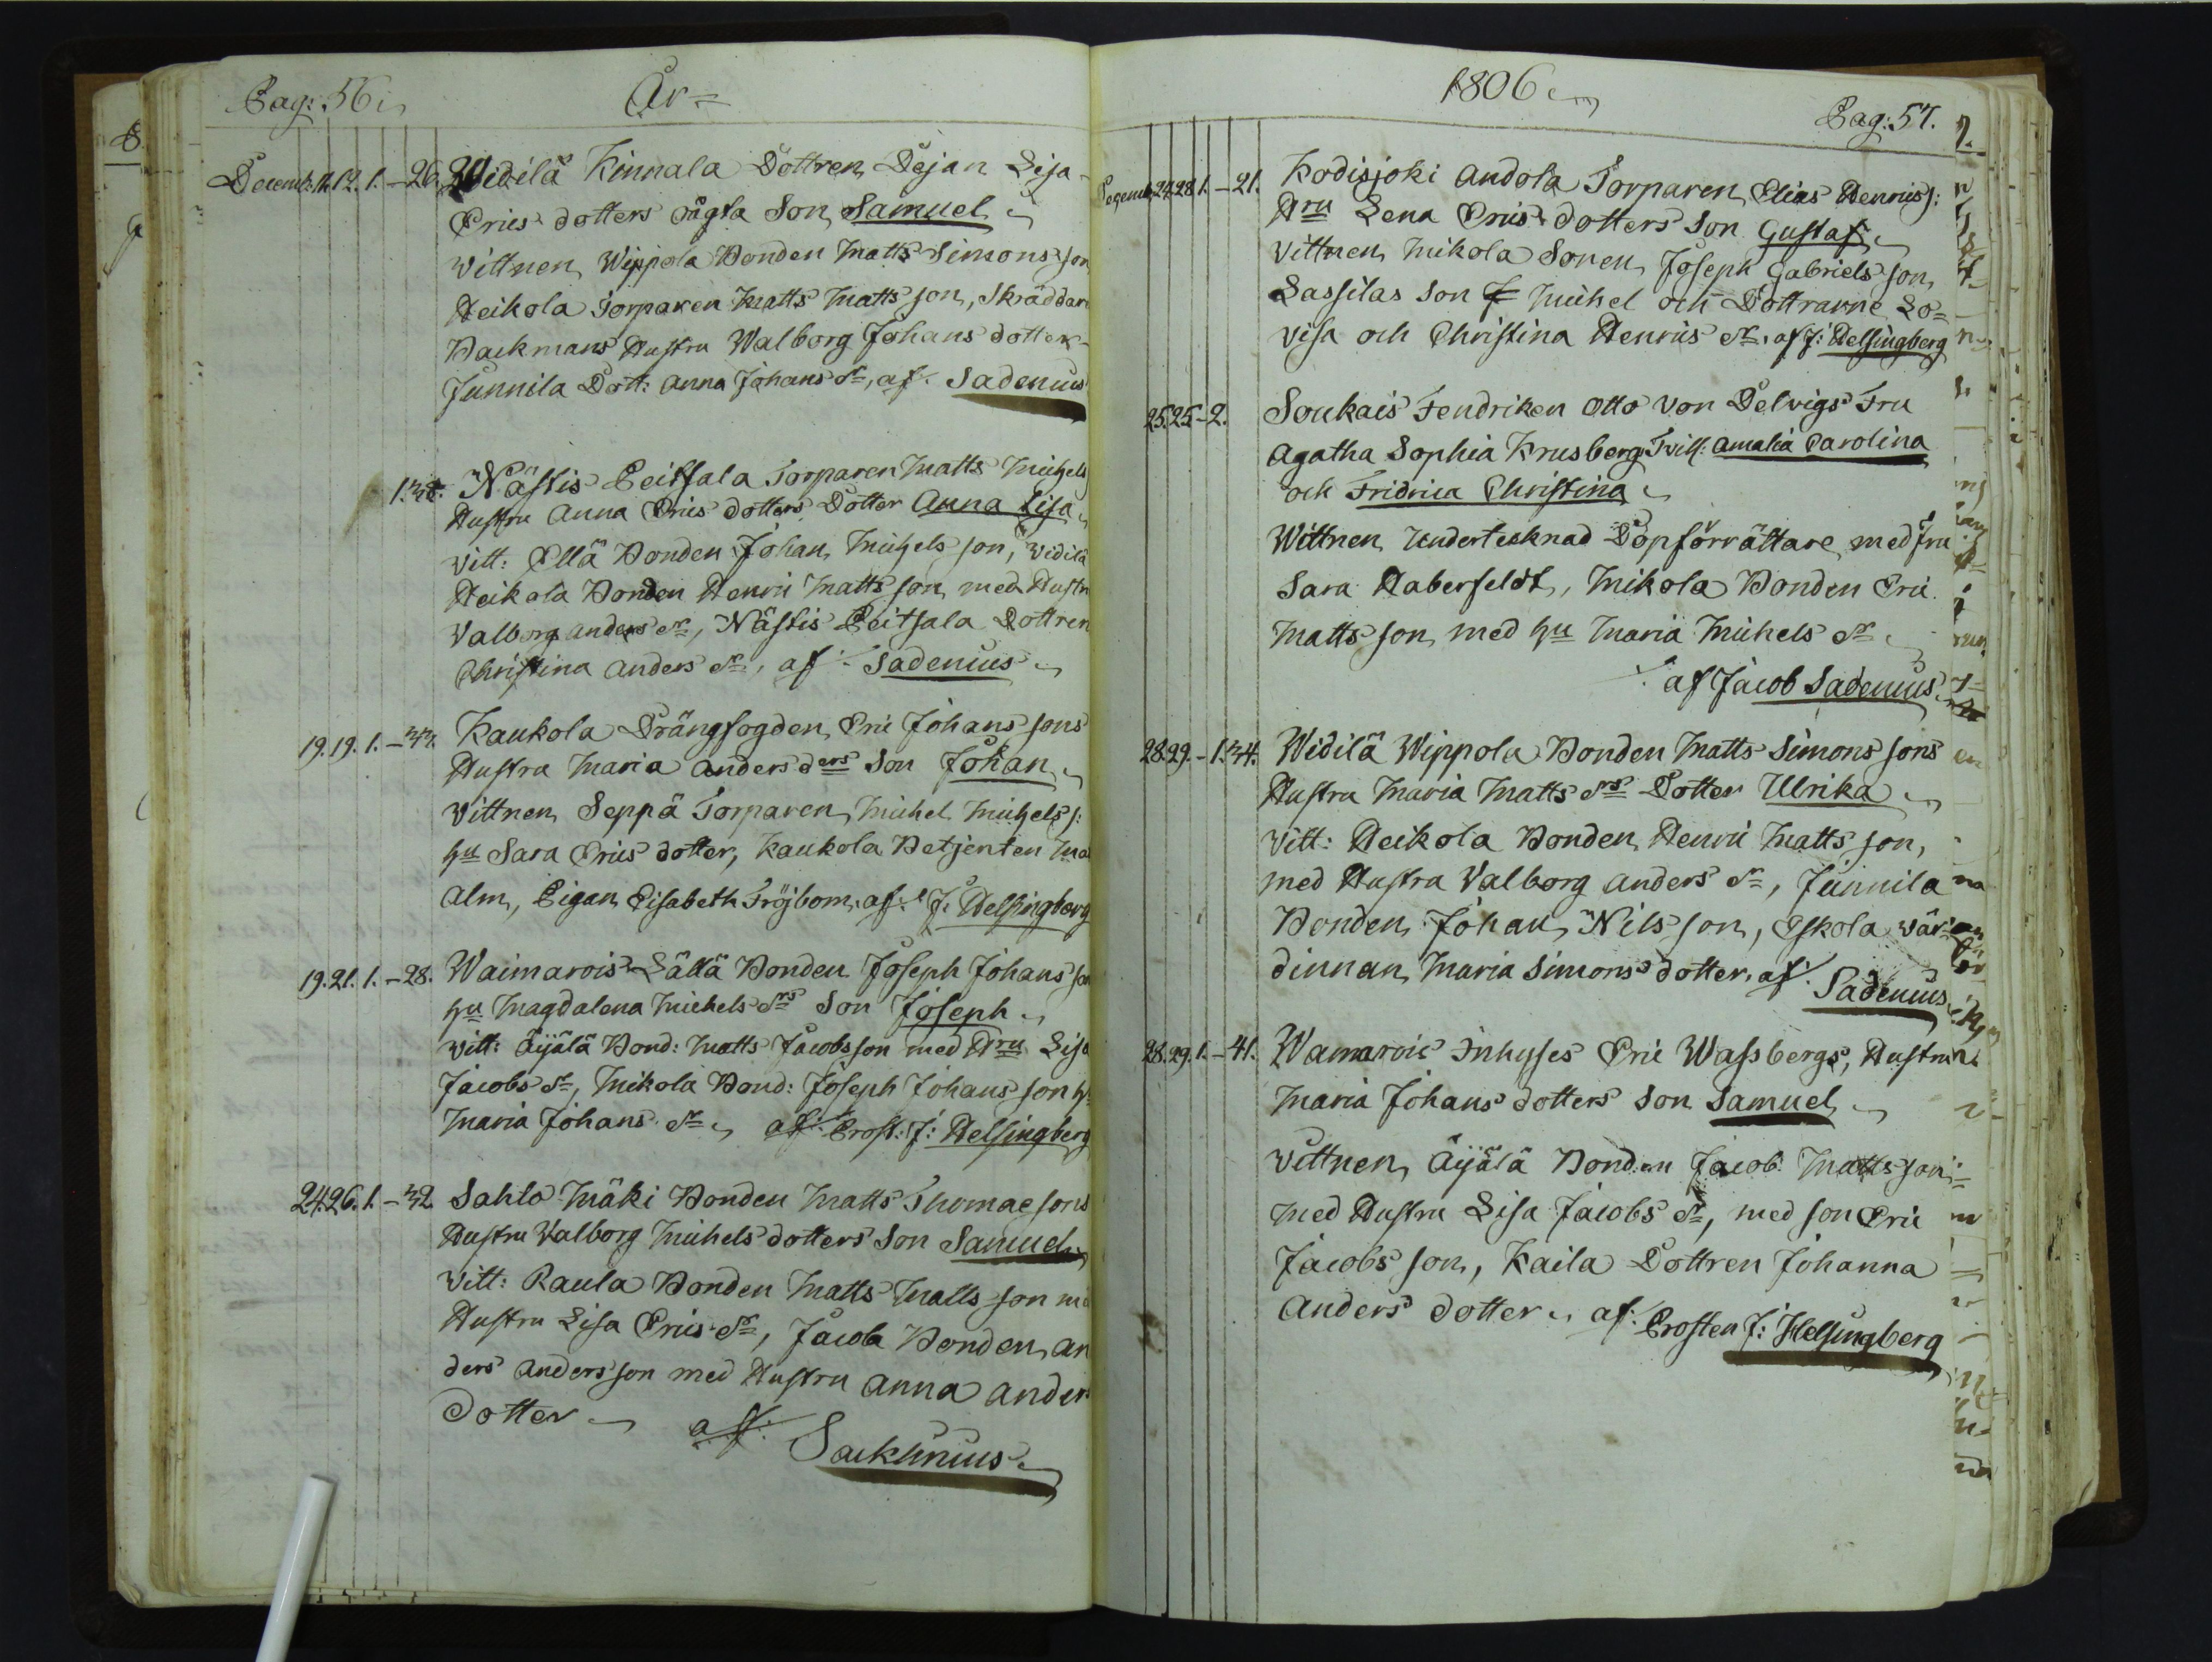 Pag: 56
År =
Decemb: 11. 12. 1. - 26. Widilä Kinnala Dottren Pejan Lisa
Erics dotters oägta Son Samuel
Wittnen, Wippola Bonden Matts Simons son
Heikola Torparen Matts Matts son, Skräddare
Backmans Hustru Walborg Johans dotter
Junnila Dott: Anna Johans dr, af. Sadenius
1. 38. Nästis Peitsala Torparen Matts Michels
Hustru Anna Erics dotters Dotter Anna Lisa
Vitt: Ellä Bonden Johan Michels son, Widilä
Heikola Bonden Henric Matts son, med Hustru
Valborg anders dr, Nästis Peitsala Dottren
Christina anders dr, af: Sadenius
19. 19. 1. - 33. Kaukola Drängfogden, Eric Johans sons
Hustru Maria anders ders Son Johan
Vittnen, Seppä Torparen, Michel Michels s:
hu Sara Erics dotter, Kaukola Betjenten Ma
Alm, Pigan Lisabeth Fröjbom. af: J: Helsingberg
19. 21. 1. - 28. Waimarois Lällä Bonden Joseph Johans son
hu Magdalena Michels drs Son Joseph
vitt: Äijälä Bond: Matts Jacobs son med Hru Lisa
Jacobs dr, Mikola Bond: Joseph Johans son h
Maria Johans dr, af: Prost: J: Helsingberg
24. 26. 1. - 32. Sahlo Mäki Bonden Matts Thomae sons
Hustru Valborg Michels dotters Son Samuel
Vitt: Raula Bonden Matts Matts son me
Hustru Lisa Erics dr, Jacola Bonden, an
ders andersson med Hustru Anna anders
dotter af:
Sacklinius
1806
Pag: 57.
Decemb 24. 28. 1. - 21. Kodisjoki Andola Torparen, Elias Henrics s:
Hru Lena Erics dotters Son Gustaf
Vittnen, Mikola Sonen, Joseph Gabriels son,
Lassilas Son Michel och Dottrarne Lo=
visa och Christina Henrics dr. af J: Helsingberg
25. 25 - 2. Soukais Fendriken Otto von Delvigs Fru
Agatha Sophia Krusberg Tvill: Amalia Carolina
och Fridrica Christina
Wittnen, Undertecknad Döpförrättare, med fru
Sara Haberfeldt, Mikola Bonden Eric
Matts son, med hu Maria Michels dr
af Jacob Sadenius
28. 29. - 1. 34. Widilä Wippola Bonden Matts Simons sons
Hustru Maria Matts drs Dotter Ulrika
Vitt: Heikola Bonden, Henric Matts son,
med Hustru Valborg anders dr, Junnila
Bonden, Johan, Nils son, Eskola wär=
dinnan, Maria Simons dotter, af: Sadenius
28. 29. 1. - 41. Wamarois Inhyses Eric Wassbergs, Hustrus
Maria Johans dotters Son Samuel
Vittnen, Äijälä Bonden Jacob Matts son
med Hustru Lisa Jacobs dr, med son Eric
Jacobs son, Kaila Dottren Johanna
Anders dotter. af: Prosten J: Helsingberg